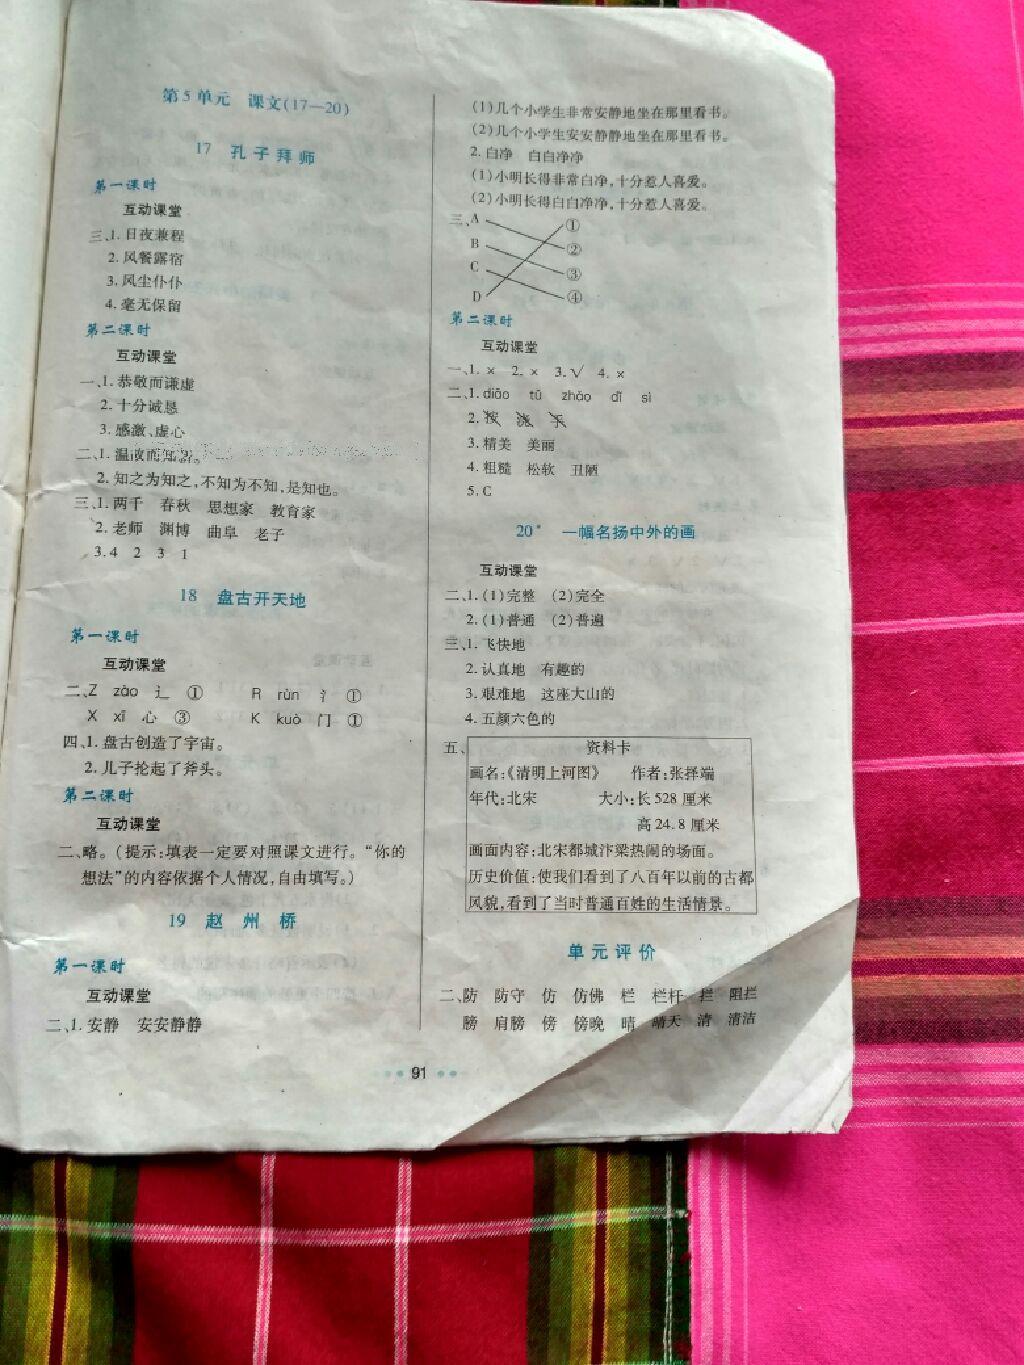 第5单元 课文(17—20)
17 孔子拜师
第一课时
互动课堂
三、1.日夜兼程
2.风餐露宿
3.风尘仆仆
4.毫无保留
第二课时
互动课堂
一、1.恭敬而谦虚
2.十分诚恳
3.感激、虚心
二、1.温故而知新。
2.知之为知之,不知为不知,是知也。
三、1.两千 春秋 思想家 教育家
2.老师 渊博 曲阜 老子
3.4 2 3 1
18 盘古开天地
第一课时
互动课堂
二、Z zào 辶 ① R rùn 氵 ①
X xī 心 ③ K kuò 门 ①
四、1.盘古创造了宇宙。
2.儿子抡起了斧头。
第二课时
互动课堂
二、略。(提示:填表一定要对照课文进行。“你的
想法”的内容依据个人情况,自由填写。)
19 赵州桥
第一课时
互动课堂
二、1.安静 安安静静
(1)几个小学生非常安静地坐在那里看书。
(2)几个小学生安安静静地坐在那里看书。
2.白净 白白净净
(1)小明长得非常白净,十分惹人喜爱。
(2)小明长得白白净净,十分惹人喜爱。
三、A ①
B ②
C ③
D ④
第二课时
互动课堂
一、1.× 2.× 3.√ 4.×
二、1.diāo tū zhǎo dǐ sì
2.按 浇 乎
3.精美 美丽
4.粗糙 松软 丑陋
5.C
20* 一幅名扬中外的画
互动课堂
二、1.(1)完整 (2)完全
2.(1)普通 (2)普遍
三、1.飞快地
2.认真地 有趣的
3.艰难地 这座大山的
4.五颜六色的
五、资料卡
画名:《清明上河图》 作者:张择端
年代:北宋 大小:长528厘米
高24.8厘米
画面内容:北宋都城汴梁热闹的场面。
历史价值:使我们看到了八百年以前的古都
风貌,看到了当时普通百姓的生活情景。
单元评价
二、防 防守 仿 仿佛 栏 栏杆 拦 阻拦
膀 肩膀 傍 傍晚 晴 晴天 清 清洁
91